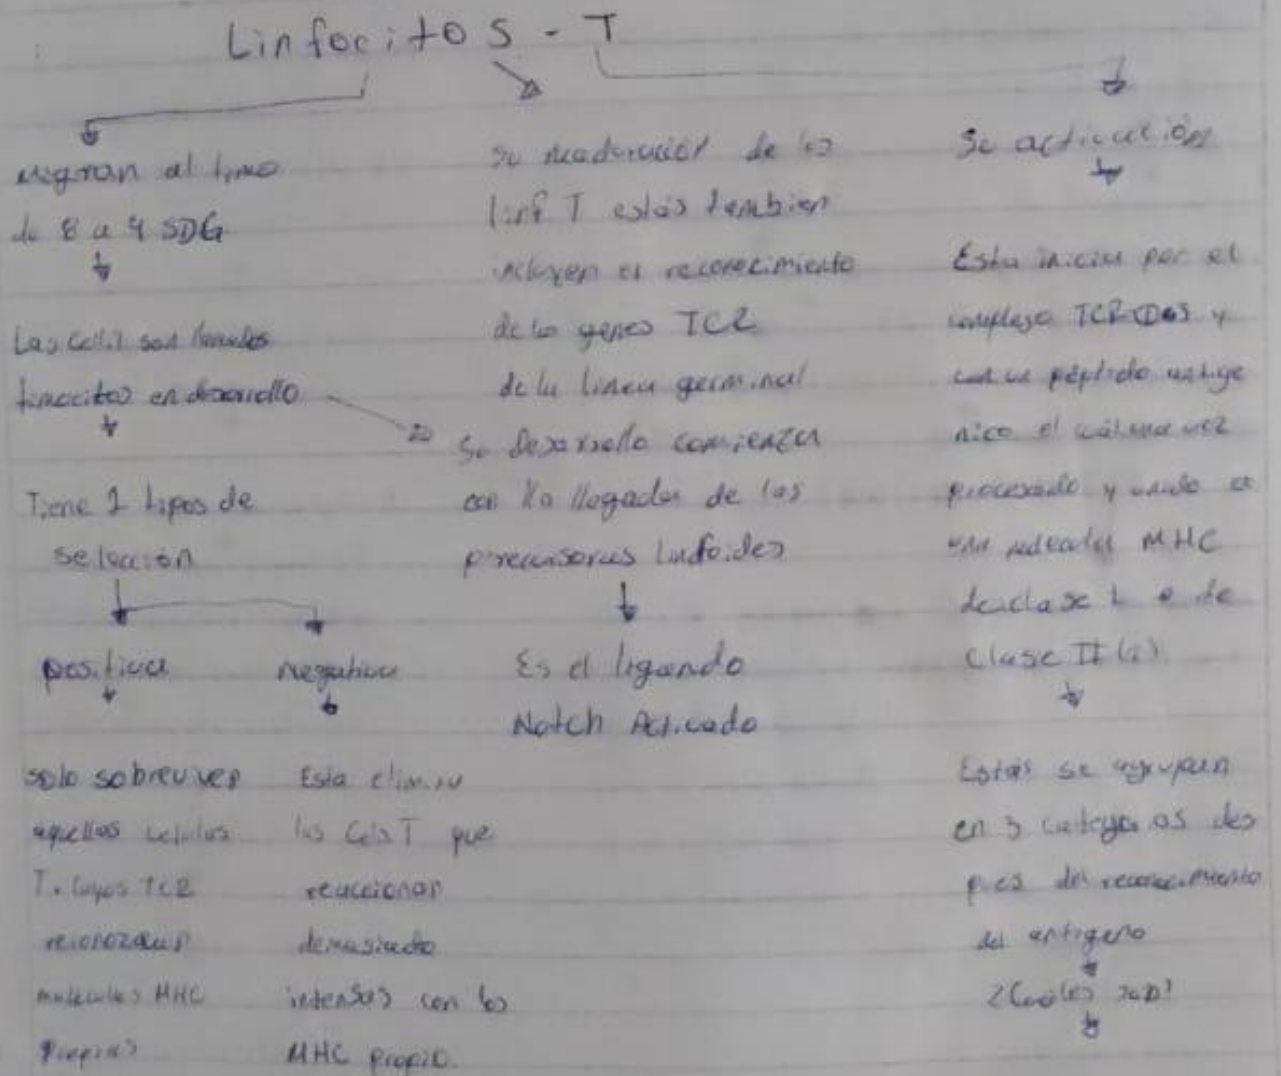 Linfocitos - T
migran al timo
de 8 a 9 SDG
Las Cels T son llamados
timocitos en desarrollo
Tiene 2 tipos de
selección
positiva
solo sobreviven
aquellas celulas
T. cuyos TCR
reconozcan
moleculas MHC
Propias
negativa
Esta elimina
las Cels T que
reaccionan
demasiado
intensas con los
MHC propio.
Su maduración de los
linf T estás tambien
incluyen el reconocimiento
de los genes TCR
de la linea germinal
Su desarrollo comienza
con la llegada de las
precursoras linfoides
Es el ligando
Notch Activado
Su activación
Esta inicia por el
complejo TCR-CD3 y
con un péptido antige
nico el cual una vez
procesado y unido a
una molecula MHC
de clase I o de
Clase II (2)
Estás se agrupan
en 3 categorias des
pues del reconocimiento
del antigeno
¿Cuáles son?